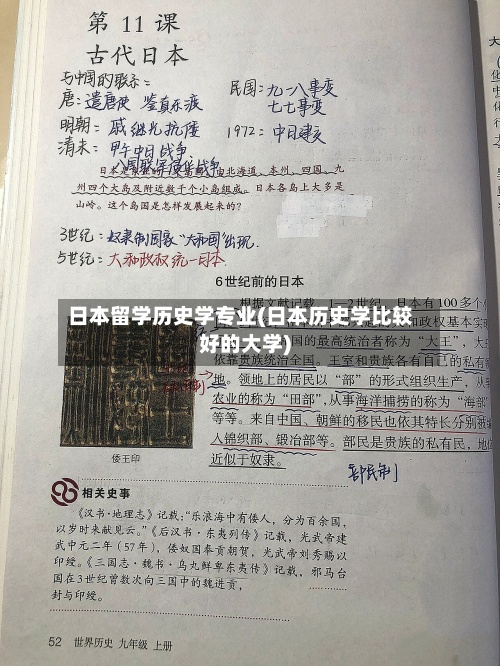 第 11 课
古代日本
与中国的联系：
唐：遣唐使 鉴真东渡
明朝：戚继光抗倭
清末：甲午中日战争
八国联军侵华战争
民国：九一八事变
七七事变
1972：中日建交
由北海道、本州、四国、九
州四个大岛及附近数千个小岛组成。日本各岛上大多是
山岭。这个岛国是怎样发展起来的？
3世纪：奴隶制国家“大和国”出现.
5世纪：大和政权统一日本
6世纪前的日本
根据文献记载，1—2世纪，日本有100多个
日本留学历史学专业(日本历史学比较
好的大学)
和政权基本实
国的最高统治者称为“大王”，大
依靠贵族统治全国。王室和贵族各有自己的私有
地。领地上的居民以“部”的形式组织生产，从
农业的称为“田部”，从事海洋捕捞的称为“海部
等等。来自中国、朝鲜的移民也依其特长分别被
人锦织部、锻冶部等。部民是贵族的私有民，地
近似于奴隶。
部民制
倭王印
相关史事
《汉书·地理志》记载：“乐浪海中有倭人，分为百余国，
以岁时来献见云。”《后汉书·东夷列传》记载，光武帝建
武中元二年（57年），倭奴国奉贡朝贺，光武帝刘秀赐以
印绶。《三国志·魏书·乌丸鲜卑东夷传》记载，邪马台
国在3世纪曾数次向三国中的魏进贡，
封与印绶。
52 世界历史 九年级 上册